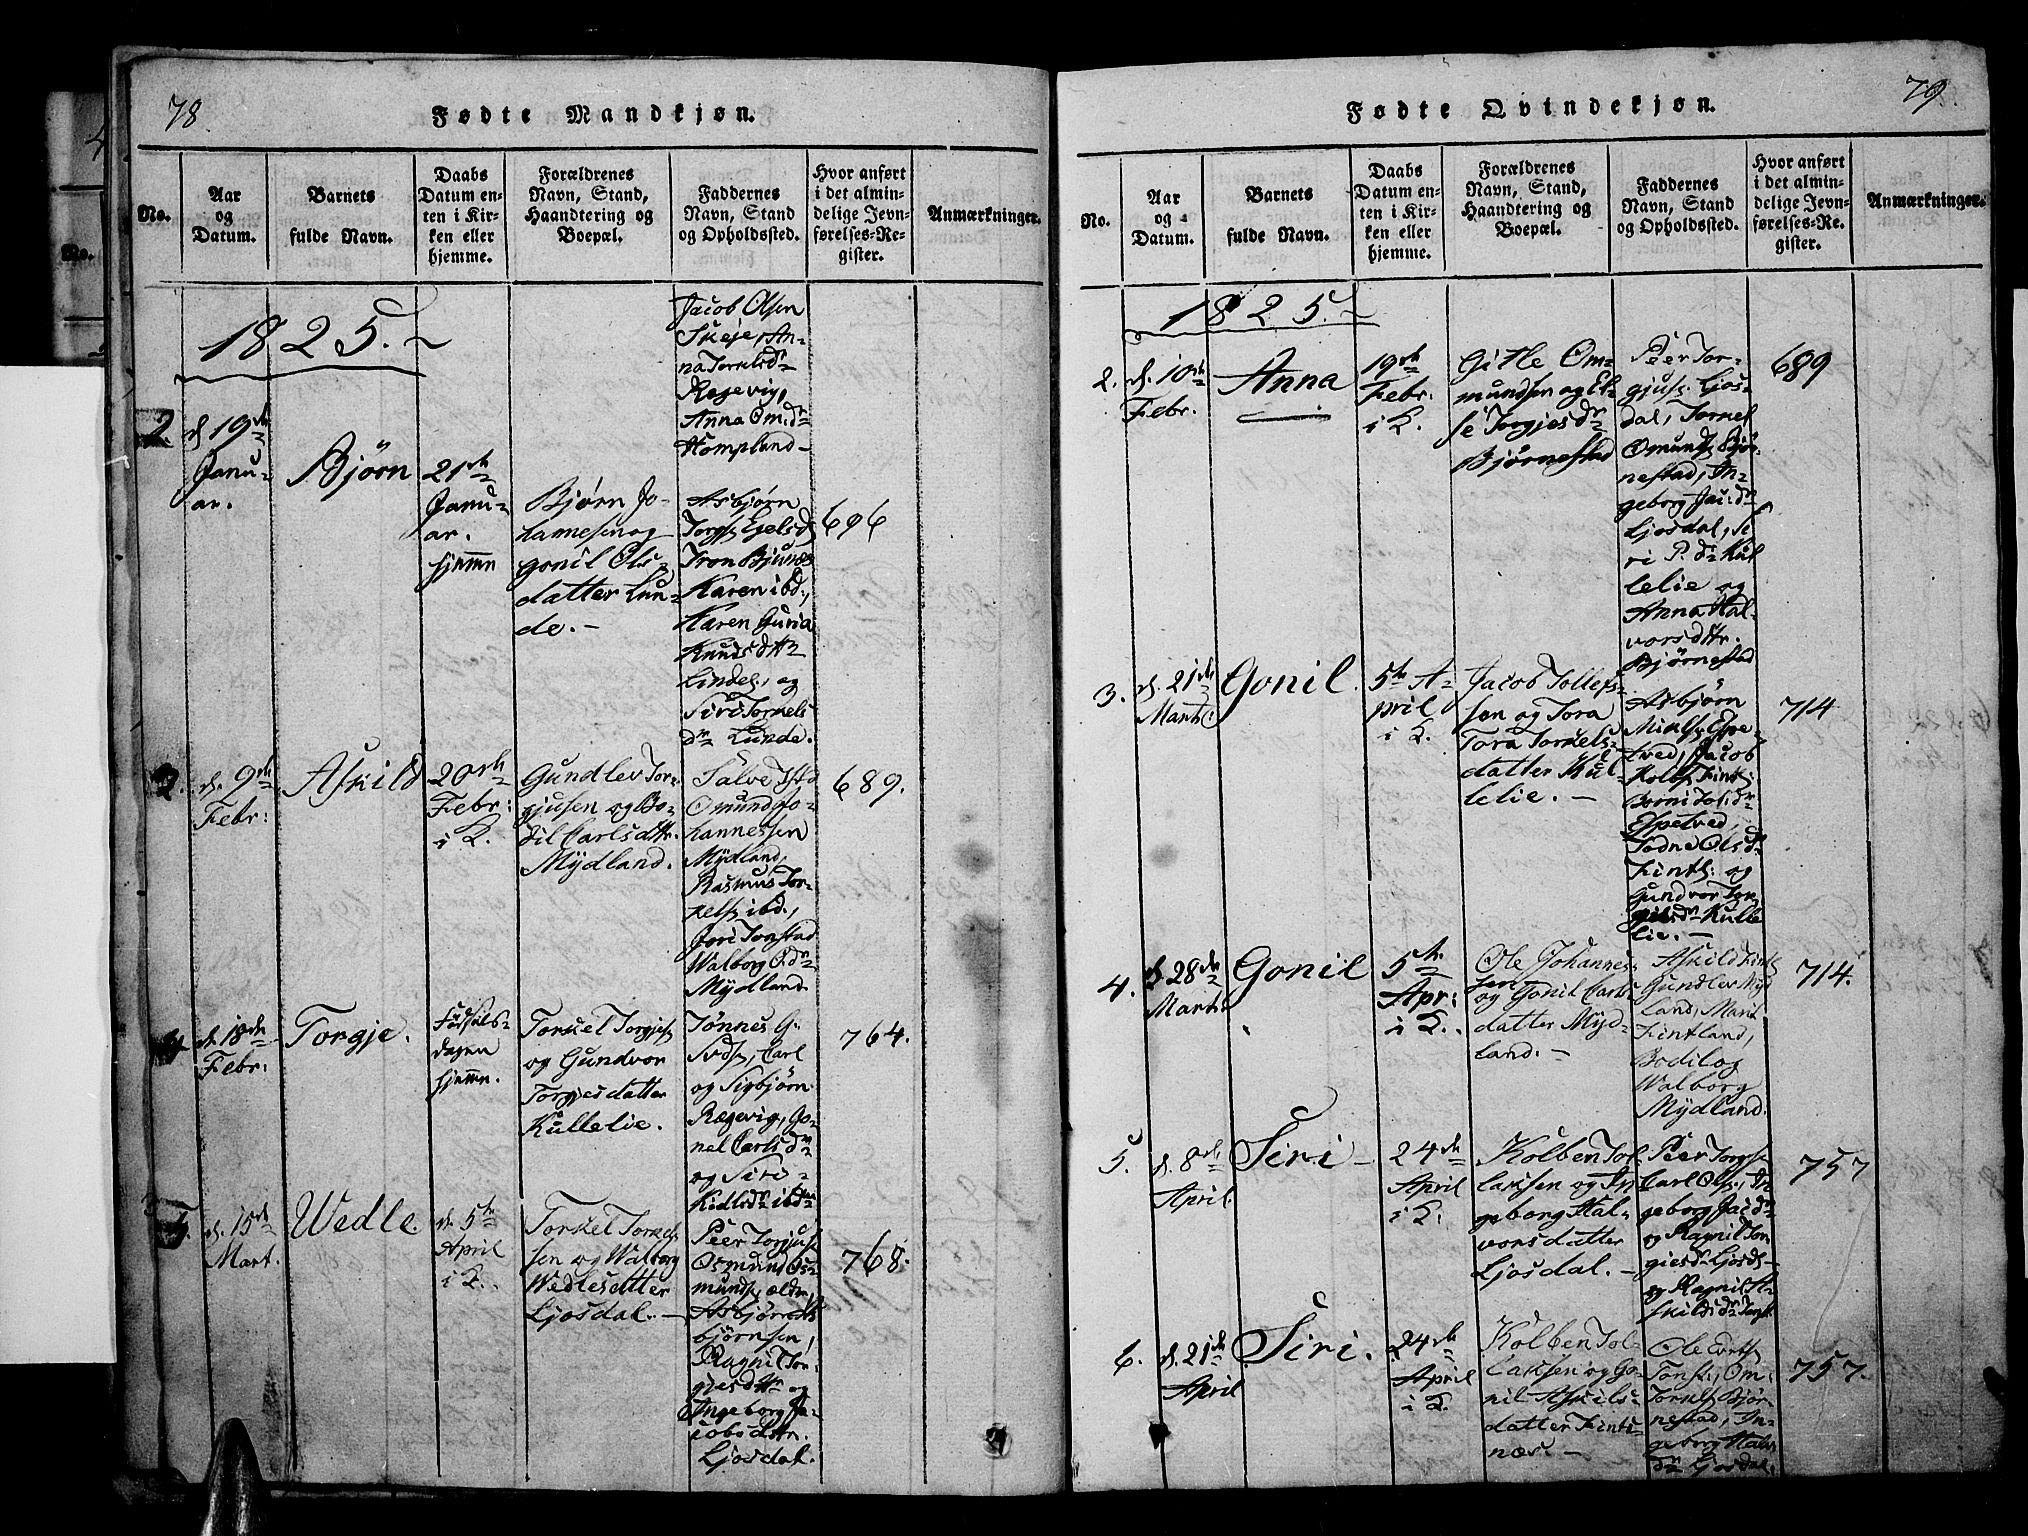 78.
Fødte Mandkjøn.
No.
Aar
og
Datum.
Barnets
fulde Navn.
Daabs
Datum en-
ten i Kir-
ken eller
hjemme.
Forældrenes
Navn, Stand,
Haandtering og
Boepæl.
Faddernes
Navn, Stand
og Opholdssted.
Hvor anført
i det almin-
delige Jevn-
førelses-Re-
gister.
Anmærkninger.
1825.
Jacob Olsen
Skeje, An-
na Torkelsdr
Regevig,
Anna Om:dr
Hompland
2.
d. 19de
Janu-
ar.
Bjørn
21de
Janu-
ar.
hjemme
Bjørn Jo-
hannesen og
Gonil Ols-
datter Lun-
de.
Asbjørn
Tron Bjunes
Karen ibd.,
Karen Guria
Knudsdttr
Lindes, og
Siri Torkels
dr Lunde.
696
d. 9de
Febr:
Askild
20de
Febr:
i K.
Gundlev Tor-
gjusen og Bo-
dil Carlsdttr.
Mydland.
Salve
Omund Jo-
hannessen
Mydland,
Rasmus Tor-
kels. ibd.,
Jori Tonstad
Walborg O.dr
Mydland
689.
d. 18de
Febr:
Torgje.
Fødsels-
dagen
hjemme.
Torkel Torgjes.
og Gundvor
Torgiesdatter
Kullelie.
Tønnes G-
Carl
og Sigbjørn
Regevig, Go-
nel Carlsdr
og Siri
Kidlsdr ibdm
764.
5.
d. 15de
Mart.
Wedle.
d. 5te
April
i K.
Torkel Torkel-
sen og Walborg
Wedlesdatter
Ljosdal.
Peer Torjus.
Osmund Os-
munds. ældr,
Asbjørn As-
bjørnsen,
Ragnil Tor-
giesdttr og
Ingeborg Ja-
cobsdttr.
Ljosdal.
768.
79.
Fødte Qvindekjøn.
No.
Aar
og
Datum.
Barnets
fulde Navn.
Daabs
Datum en-
ten i Kir-
ken eller
hjemme.
Forældrenes
Navn, Stand,
Haandtering og
Boepæl.
Faddernes
Navn, Stand
og Opholdssted.
Hvor anført
i det almin-
delige Jevn-
førelses-Re-
gister.
Anmærkninger.
1825.
2.
d. 10de
Febr.
Anna
19de
Febr.
i K.
Gitle Om-
mundsen og El-
se Torgjesdr
Bjørnestad
Peer Tor-
gjus. Ljos-
dal, Tornel
Omunds. Bjør-
nestad, In-
geborg Jac:dr
Ljosdal, Si-
ri P.dr Kul-
lelie og
Anna Hal-
vorsdttr.
Bjørnestad
689
3.
d. 21de
Marts:
Gonil.
5te A-
pril
i K.
Jacob Tollefs-
sen og Tora
Tora Torkels-
datter Kul-
lelie.
Asbjørn
Nikls. Espe-
tved, Jacob
Kolbs. Fintl:
Berni Tol:dr
Espetved
Todne Olsd
Fintl: og
Gundvor Tor
giesdr Kulle
lie.
714
4.
d. 28de
Marts.
Gonil
5te
Apr:
i K.
Ole Johannes-
sen
og Gonil Carls-
datter Myd-
land.
Askild Fintl
Gundlev Myd
land, Marit
Fintland,
Bodil og
Walborg
Mydland.
714.
5.
d. 8de
April.
Siri
24de
April
i K.
Kolben Tol-
laksen og In-
geborg Hal-
vorsdatter
Ljosdal.
Peer Torgs.
Carl Ols., In
geborg Jacdr
og Ragnil Tor
giesdr Ljosd
og Ragnil A-
skildsdr Tonst
757
6.
d. 21de
April
Siri.
24de
April
i K.
Kolben Tol-
laksen og Go-
nil Askils-
datter Fint-
næs.
Ole Evrts.
Tonst., Om:
Torkels. Bjør-
nestad, In-
geborg Halv
dr Ljosdal.
757.